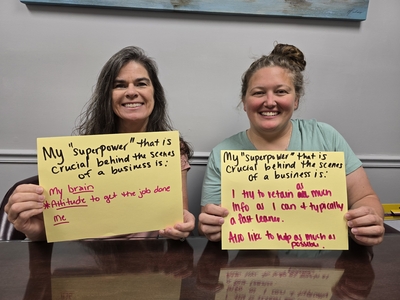 My "superpower" that is
crucial behind the scenes
of a business is:
My brain
*Attitude to get the job done
me.
My "superpower" that is
crucial behind the scenes
of a business is:
as
I try to retain as much
info as I can & typically
a fast learner.
Also like to help as much as
possible.